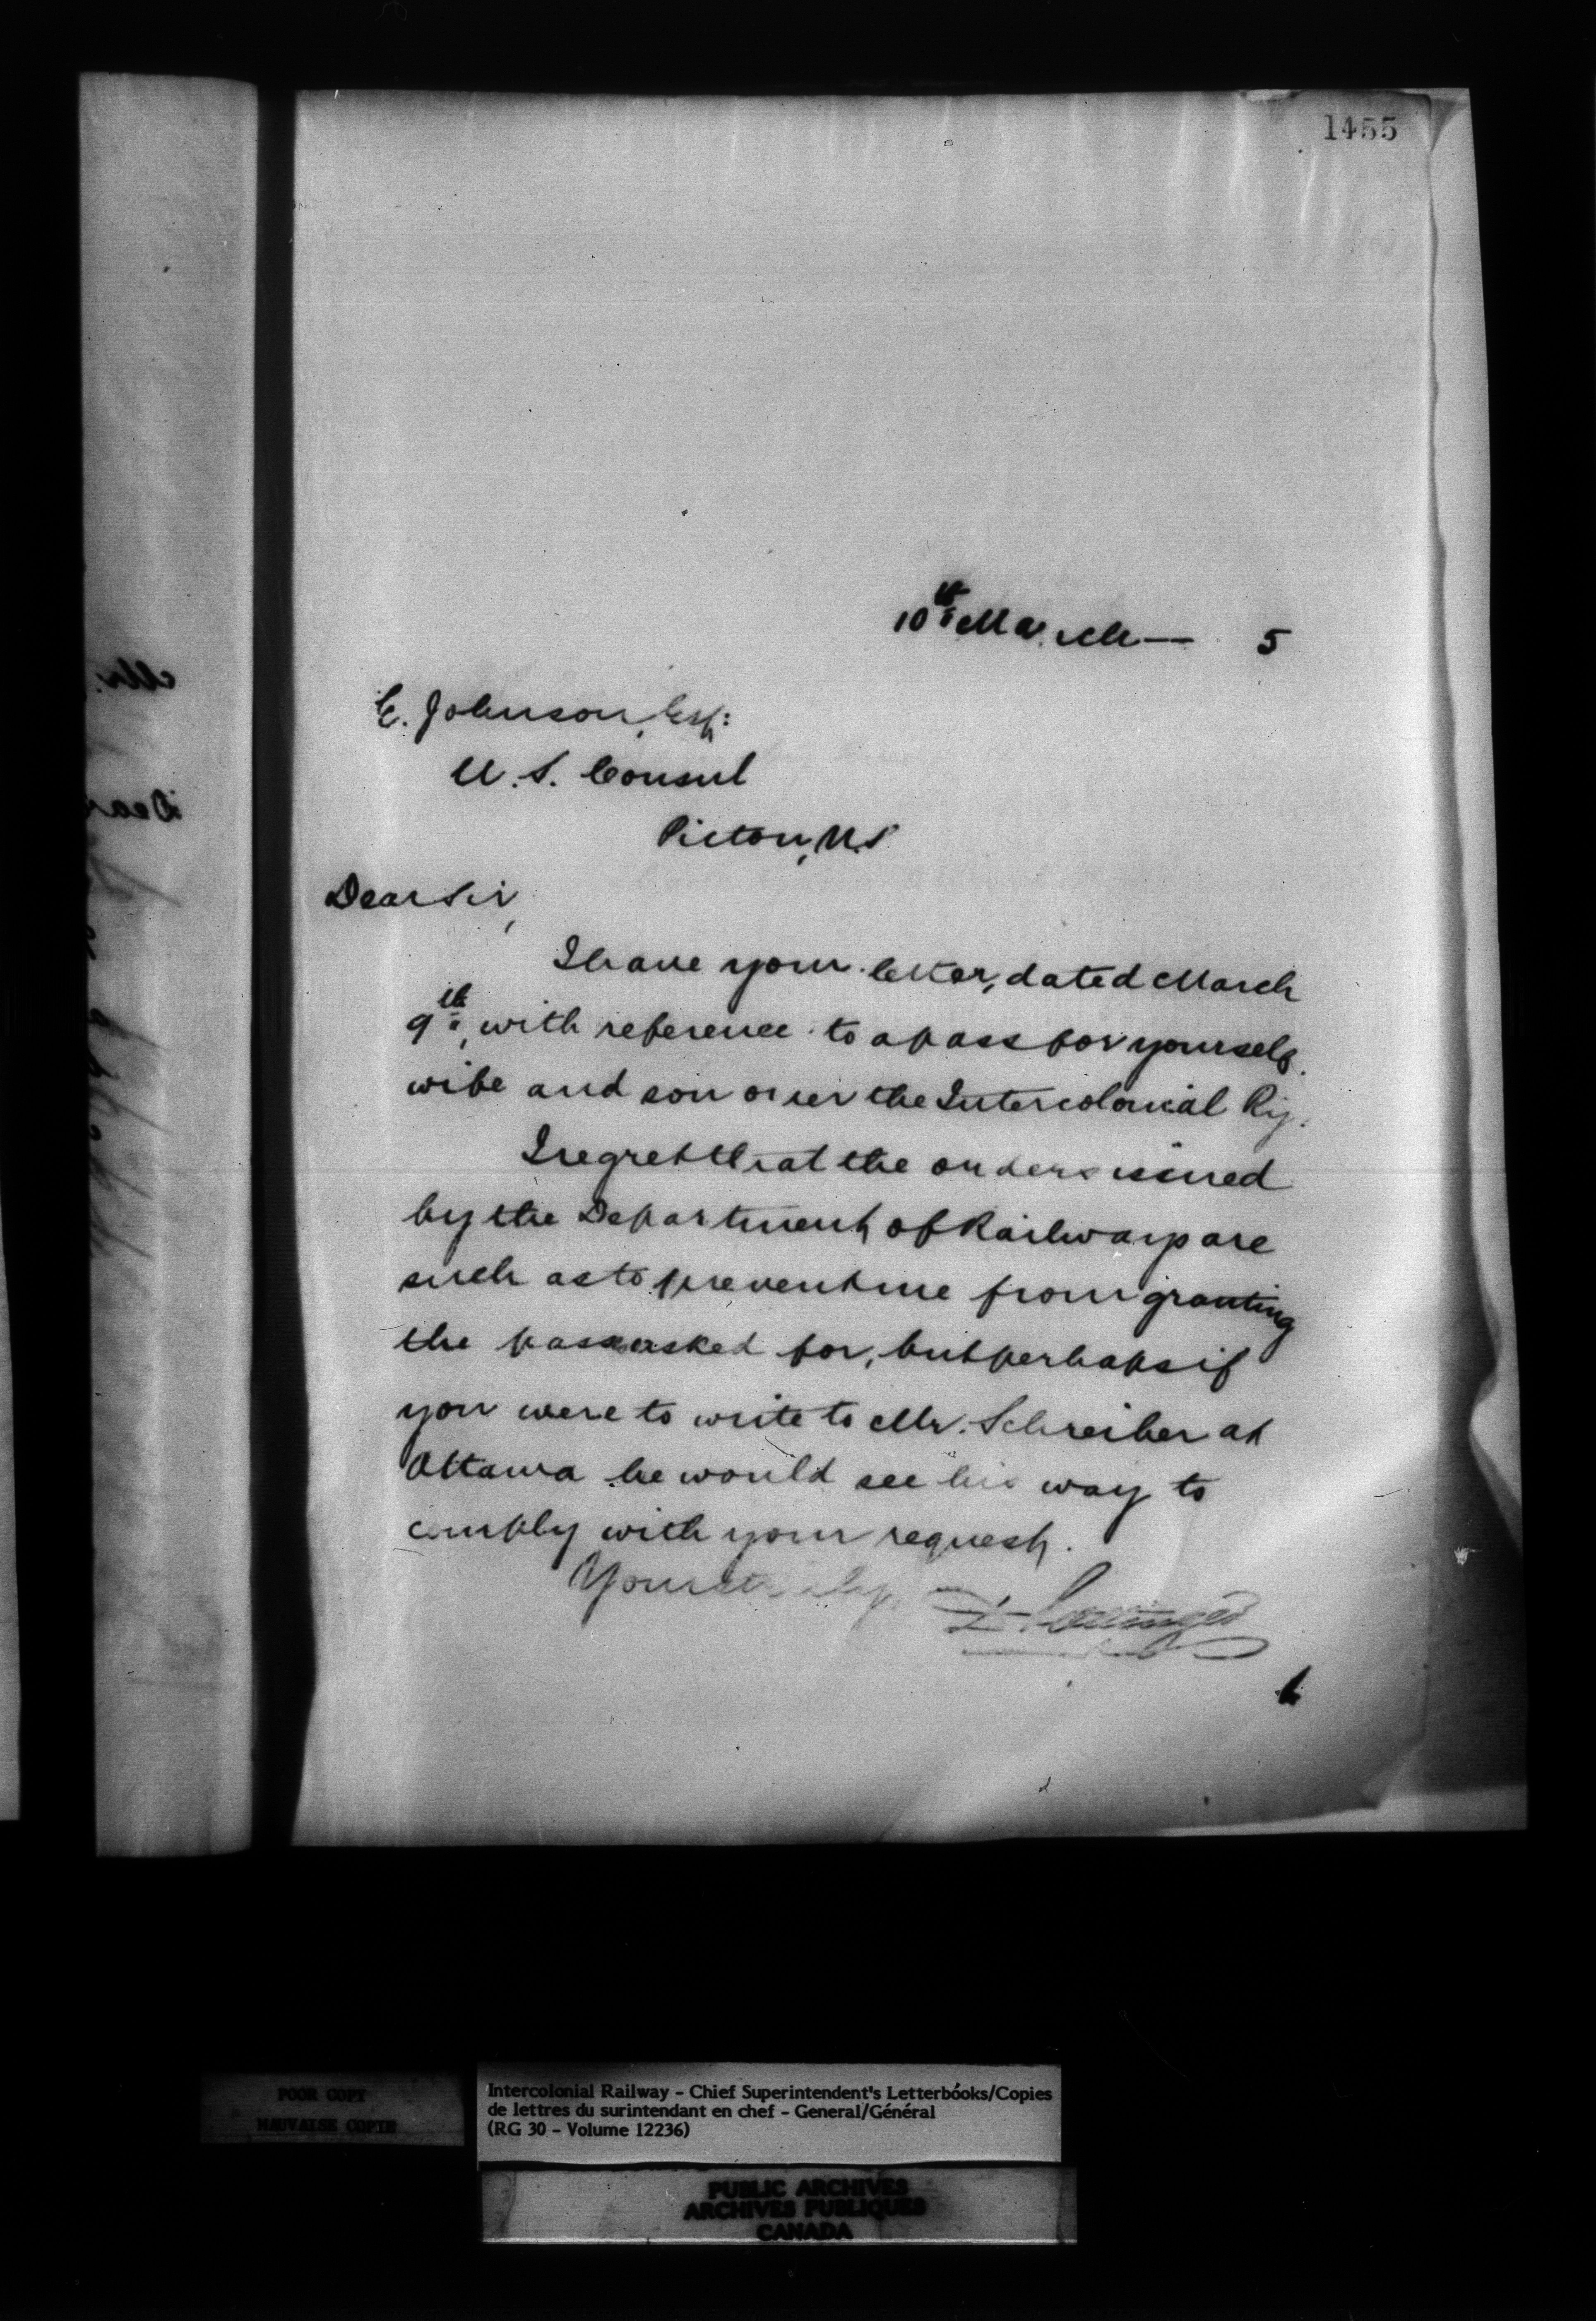 1455
10th March — 5
E. Johnson, Esq:
U.S. Consul
Pictou, N.S.
Dear Sir,
I have your letter, dated March
9th, with reference to a pass for yourself,
wife and son over the Intercolonial Ry.
I regret that the orders issued
by the Department of Railways are
such as to prevent me from granting
the pass asked for, but perhaps if
you were to write to Mr. Schreiber at
Ottawa he would see his way to
comply with your request.
Yours truly,
D. Pottinger
Mr.
Dear
POOR COPY
MAUVAISE COPIE
Intercolonial Railway - Chief Superintendent's Letterbooks/Copies
de lettres du surintendant en chef - General/Général
(RG 30 - Volume 12236)
PUBLIC ARCHIVES
ARCHIVES PUBLIQUES
CANADA